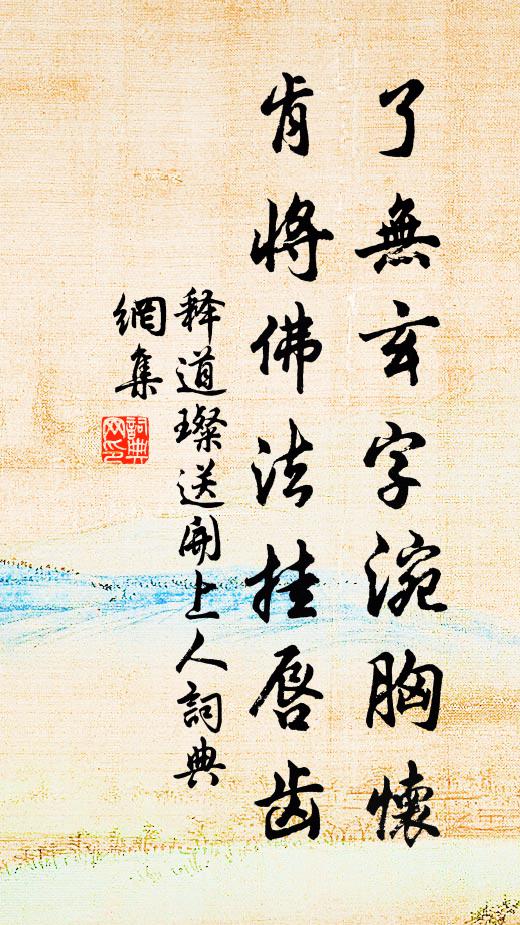 了無玄字涴胸懷
肯將佛法挂唇齿
释道璨送開上人詞典
網集
詞典網印